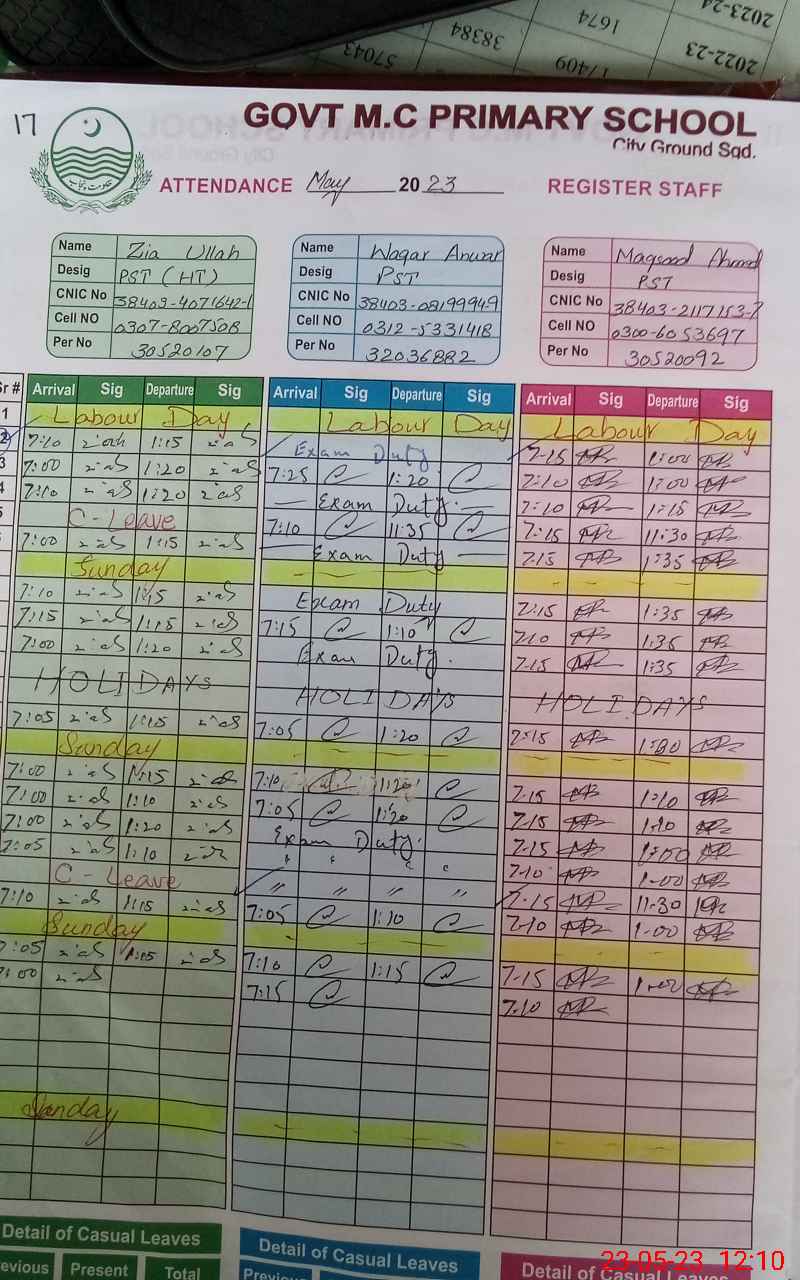 2023-24
1674
38384
57043
2022-23
17409
17
GOVT M.C PRIMARY SCHOOL
City Ground Sgd.
ATTENDANCE May 2023 REGISTER STAFF
Name Zia Ullah
Desig PST (HT)
CNIC No 38403-4071642-1
Cell NO 0307-8007508
Per No 30520107
Name Waqar Anwar
Desig PST
CNIC No 38403-0819994-9
Cell NO 0312-5331418
Per No 32036882
Name Maqsood Ahmad
Desig PST
CNIC No 38403-2117153-7
Cell NO 0300-6053697
Per No 30520092
Sr # Arrival Sig Departure Sig Arrival Sig Departure Sig Arrival Sig Departure Sig
1 Labour Day Labour Day Labour Day
2 7:10 1:15 Exam Duty 7-15 1:00
3 7:00 1:20 7:25 1:20 7:10 1:00
4 7:10 1:20 Exam Duty 7:10 1:15
5 C-Leave 7:10 11:35 7:15 11:30
7:00 1:15 Exam Duty 7.15 1:35
Sunday
7:10 1:15 Exam Duty 7:15 1:35
7:15 1:15 7:15 1:10 7:10 1:35
7:00 1:20 Exam Duty 7-15 1:35
HOLIDAYS HOLIDAYS HOLIDAYS
7:05 1:15 7:05 1:20 7:15
Sunday
7:00 1:15 7:10 1:20 7-15 1:10
7:00 1:10 7:05 1:20 7.15 1:10
7:00 1:20 Exam Duty 7-15 1:00
7:05 1:10 7-10 1-00
C-Leave " " " " 7-15 11-30
7:10 1:15 7:05 1:10 7-10 1-00
Sunday
7:05 1:15 7:10 1:15 7-15 1:00
7:00 7:15 7.10
Sunday
Detail of Casual Leaves Detail of Casual Leaves Detail of Casual Leaves
Previous Present Total Previous
23-05-23 12:10